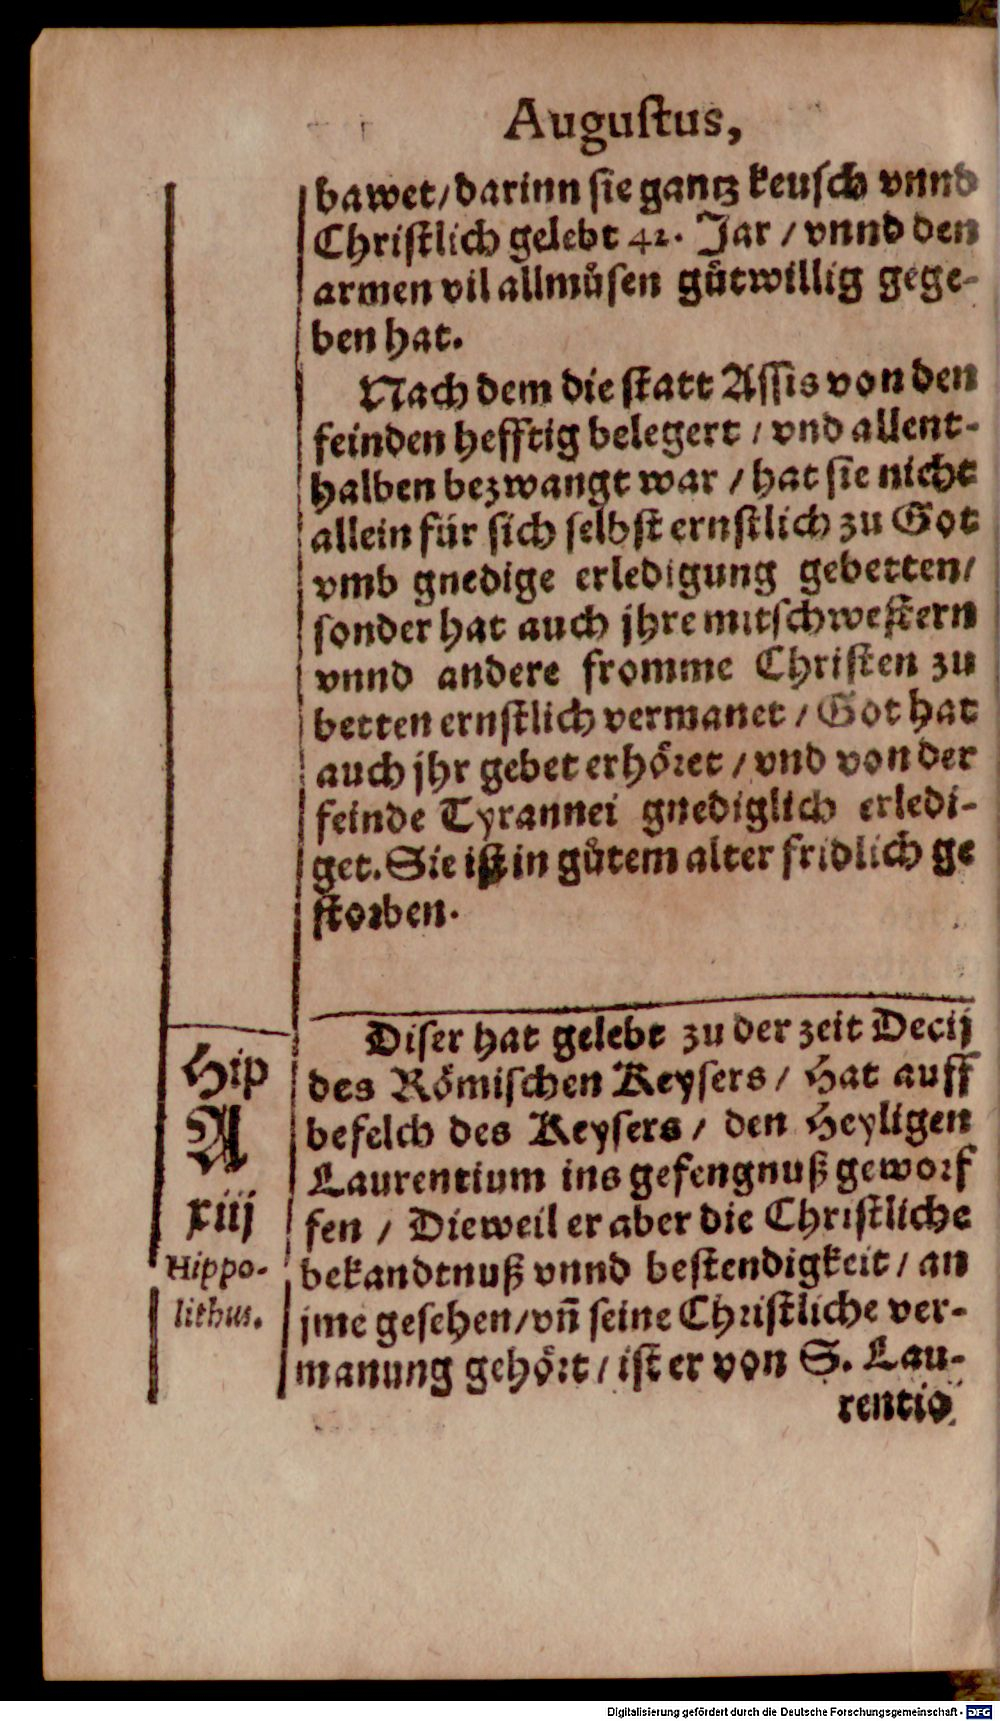 Augustus,
bawet/darinn sie gantz keusch vnnd
Christlich gelebt 42. Jar / vnnd den
armen vil allmůsen gůtwillig gege-
ben hat.
Nach dem die statt Assis von den
feinden hefftig belegert / vnd allent-
halben bezwangt war / hat sie nicht
allein für sich selbst ernstlich zu Got
vmb gnedige erledigung gebetten/
sonder hat auch jhre mitschwestern
vnnd andere fromme Christen zu
betten ernstlich vermanet / Got hat
auch jhr gebet erhöret / vnd von der
feinde Tyrannei gnediglich erledi-
get. Sie ist in gůtem alter fridlich ge
storben.
Diser hat gelebt zu der zeit Decij
des Römischen Keysers / Hat auff
befelch des Keysers / den Heyligen
Laurentium ins gefengnuß geworf
fen / Dieweil er aber die Christliche
bekandtnuß vnnd bestendigkeit / an
jme gesehen/vn̄ seine Christliche ver-
manung gehört / ist er von S. Lau-
rentio
Hip
A
xiij
Hippo-
lithus.
Digitalisierung gefördert durch die Deutsche Forschungsgemeinschaft - DFG